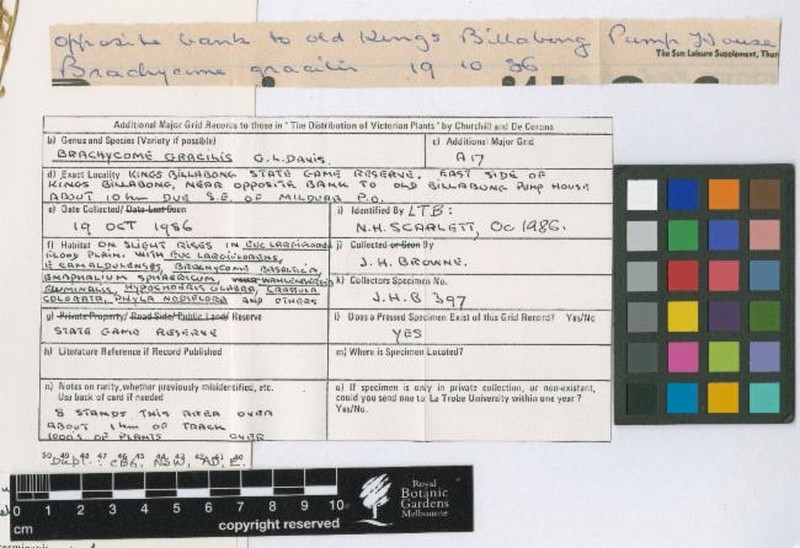 opposite bank to old Kings Billabong Pump House
The Sun Leisure Supplement, Thur
Brachycome gracilis 19 10 86
Additional Major Grid Records to those in "The Distribution of Victorian Plants" by Churchill and De Corona
b) Genus and Species (Variety if possible)
BRACHYCOME GRACILIS G.L.DAVIS.
c) Additional Major Grid
A 17
d) Exact Locality KINGS BILLABONG STATE GAME RESERVE. EAST SIDE OF
KINGS BILLABONG, NEAR OPPOSITE BANK TO OLD BILLABONG PUMP HOUSE
ABOUT 10 km DUE S.E. OF MILDURA P.O.
e) Date Collected/ Date Last Seen
19 OCT 1986
i) Identified By LTB:
N.H. SCARLETT, Oc 1986.
f) Habitat ON SLIGHT RISES IN EUC LARGIFLORENS
FLOOD PLAIN. WITH EUC LARGIFLORENS,
E CAMALDULENSES, BRACHYCOME BASALTICA,
GNAPHALIUM SPHAERICUM,
FLUMINALIS, HYPOCHOERIS GLABRA, CRASSULA
COLORATA, PHYLA NODIFLORA AND OTHERS
j) Collected or Seen By
J. H. BROWNE.
k) Collectors Specimen No.
J.H.B 397
g) Private Property/ Road Side/ Public Land/ Reserve
STATE GAME RESERVE
l) Does a Pressed Specimen Exist of this Grid Record? Yes/No
YES
h) Literature Reference if Record Published
m) Where is Specimen Located?
n) Notes on rarity, whether previously misidentified, etc.
Use back of card if needed
8 STANDS THIS AREA OVER
ABOUT 1 km OF TRACK
1000'S OF PLANTS OVER
o) If specimen is only in private collection, or non-existent,
could you send one to La Trobe University within one year?
Yes/No.
Dupl.: CBG, NSW, AD, E.
0 1 2 3 4 5 6 7 8 9 10
cm
copyright reserved
Royal
Botanic
Gardens
Melbourne